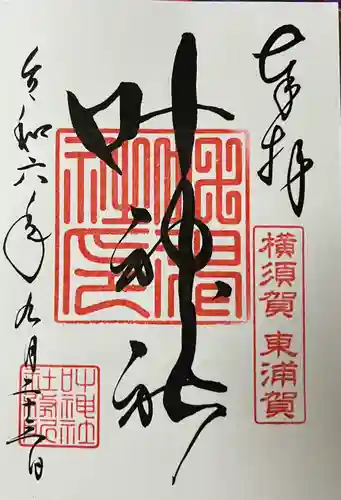 奉拝
横須賀 東浦賀
叶神社
令和六年九月二十三日
叶神社